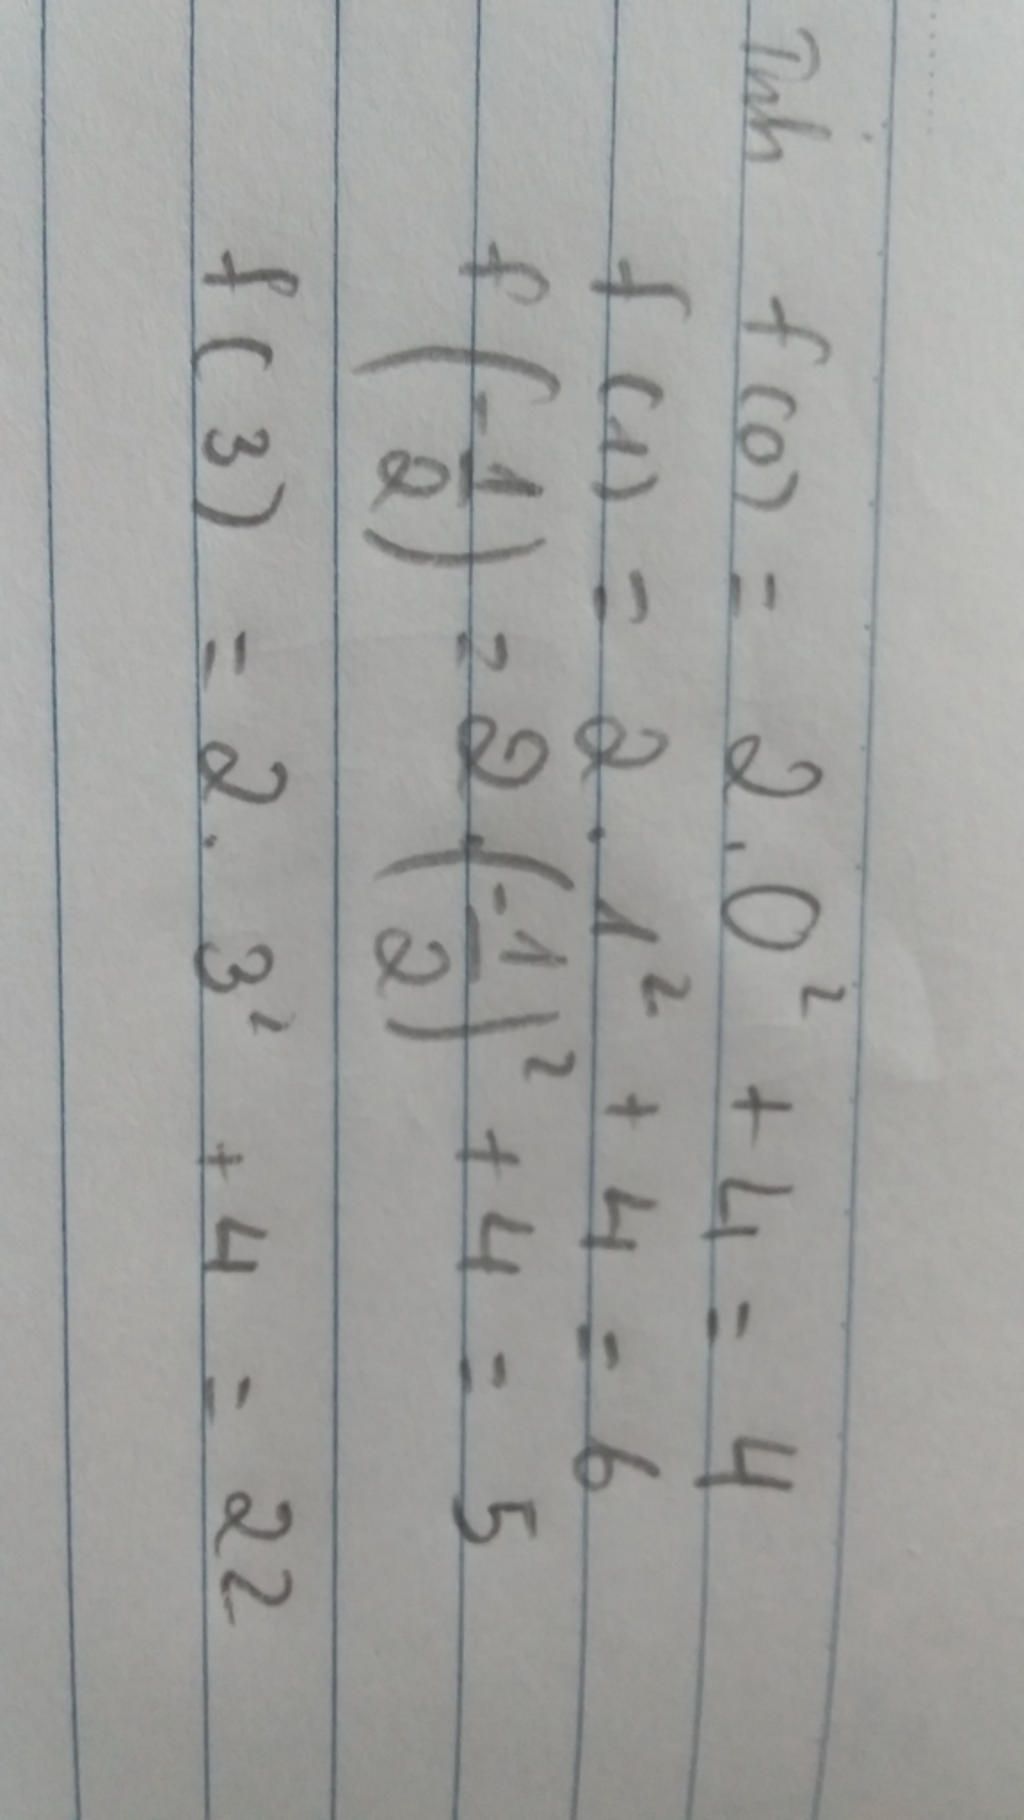 Tính f(0) = 2.0² + 4 = 4
f(1) = 2.1² + 4 = 6
f(-1/2) = 2.(-1/2)² + 4 = 5
f(3) = 2.3² + 4 = 22